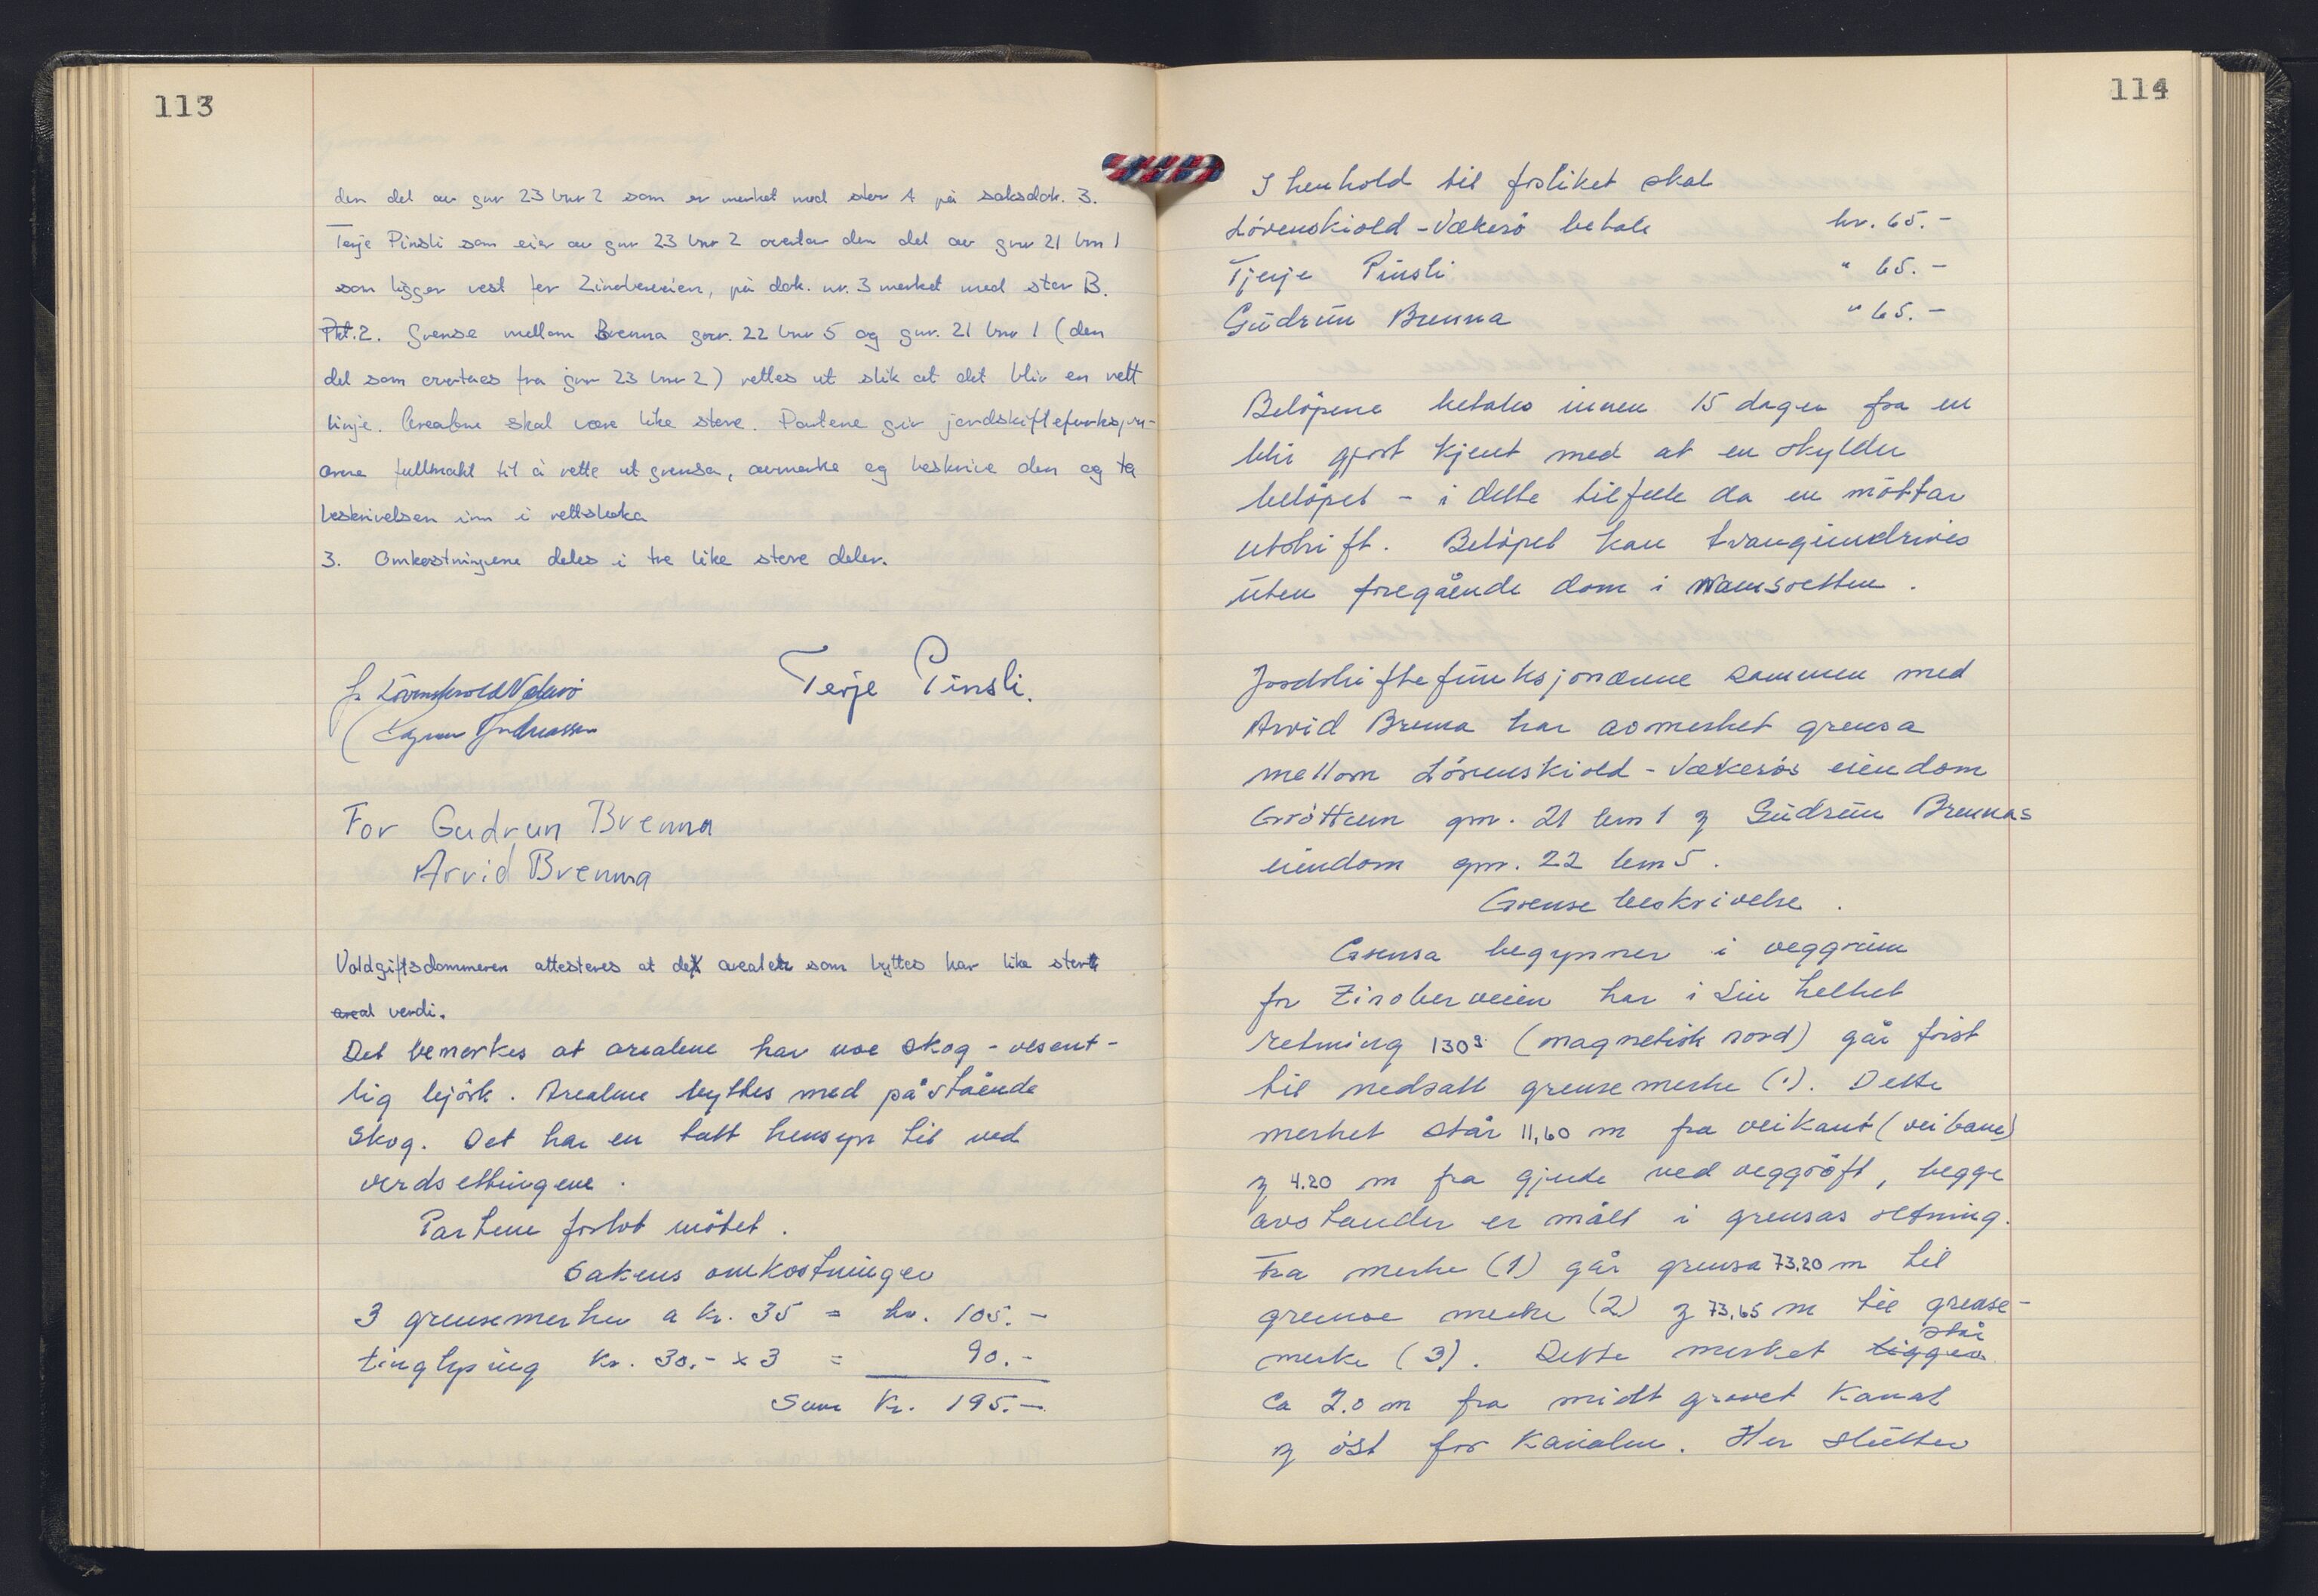 113
den del av gnr 23 bnr 2 som er merket med stor A på saksdok. 3.
Terje Pinsli som eier av gnr 23 bnr 2 overtar den del av gnr 21 bnr 1
som ligger vest for Zinoberveien, på dok. nr. 3 merket med stor B.
Pkt. 2. Grense mellom Brenna gnr. 22 bnr 5 og gnr. 21 bnr 1 (den
del som overtaes fra gnr 23 bnr 2) rettes ut slik at det blir en rett
linje. Arealene skal være like store. Partene gir jordskiftefunksjon-
ærene fullmakt til å rette ut grensa, avmerke og beskrive den og ta
beskrivelsen inn i rettsboka
3. Omkostningene deles i tre like store deler.
f. Løvenskiold Vækerö
Terje Pinsli.
For Gudrun Brenna
Arvid Brenna
Voldgiftsdommeren attesteres at de arealer som byttes har like stor
areal verdi.
Det bemerkes at arealene har noe skog - vesent-
lig bjørk. Arealene byttes med påstående
skog. Det har en tatt hensyn til ved
verdsettingene.
Partene forlot møtet.
Sakens omkostninger
3 grensemerker a kr. 35 = kr. 105.-
tinglysing kr. 30.- x 3 = 90.-
Sum kr. 195.-
114
I henhold til forliket skal
Løvenskiold - Vækerö betale kr. 65.-
Tjerje Pinsli " 65.-
Gudrun Brenna " 65.-
Beløpene betales innen 15 dager fra en
blir gjort kjent med at en skylder
beløpet - i dette tilfelle da en mottar
utskrift. Beløpet kan tvanginndrives
uten foregående dom i namsretten.
Jordskiftefunksjonærene sammen med
Arvid Brenna har avmerket grensa
mellom Lövenskiold - Vækerös eiendom
Gröttum gnr. 21 bnr 1 og Gudrun Brennas
eiendom gnr. 22 bnr 5.
Grense beskrivelse.
Grensa begynner i veggrunn
for Zinoberveien har i sin helhet
retning 130g (magnetisk nord) går först
til nedsatt grensemerke (1). Dette
merket står 11,60 m fra veikant (veibane)
og 4.20 m fra gjerde ved veggröft, begge
avstander er målt i grensas retning.
Fra merke (1) går grensa 73,20 m til
grense merke (2) og 73,65 m til grense-
merke (3). Dette merket ligger står
ca 2.0 m fra midt gravet kanal
og öst for kanalen. Her slutter